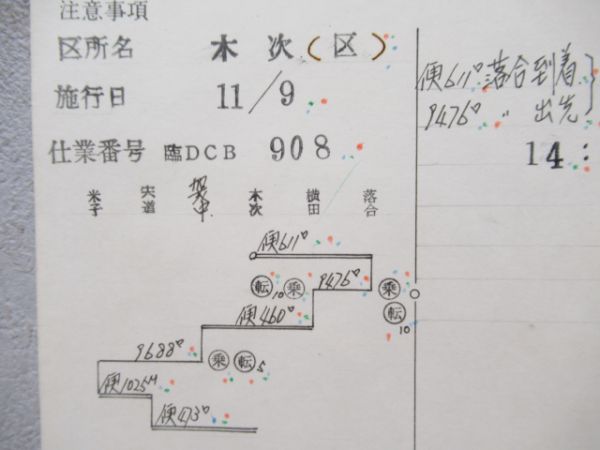 注意事項
区所名 木次(区)
施行日 11/9
仕業番号 臨DCB 908
米子 宍道 木次 横田 落合
便611D
転10 乗 9476D 乗
転10
便460D
9688D 乗 転5
便1025M
便473D
便611D 落合到着
9476D 〃 出先
14: